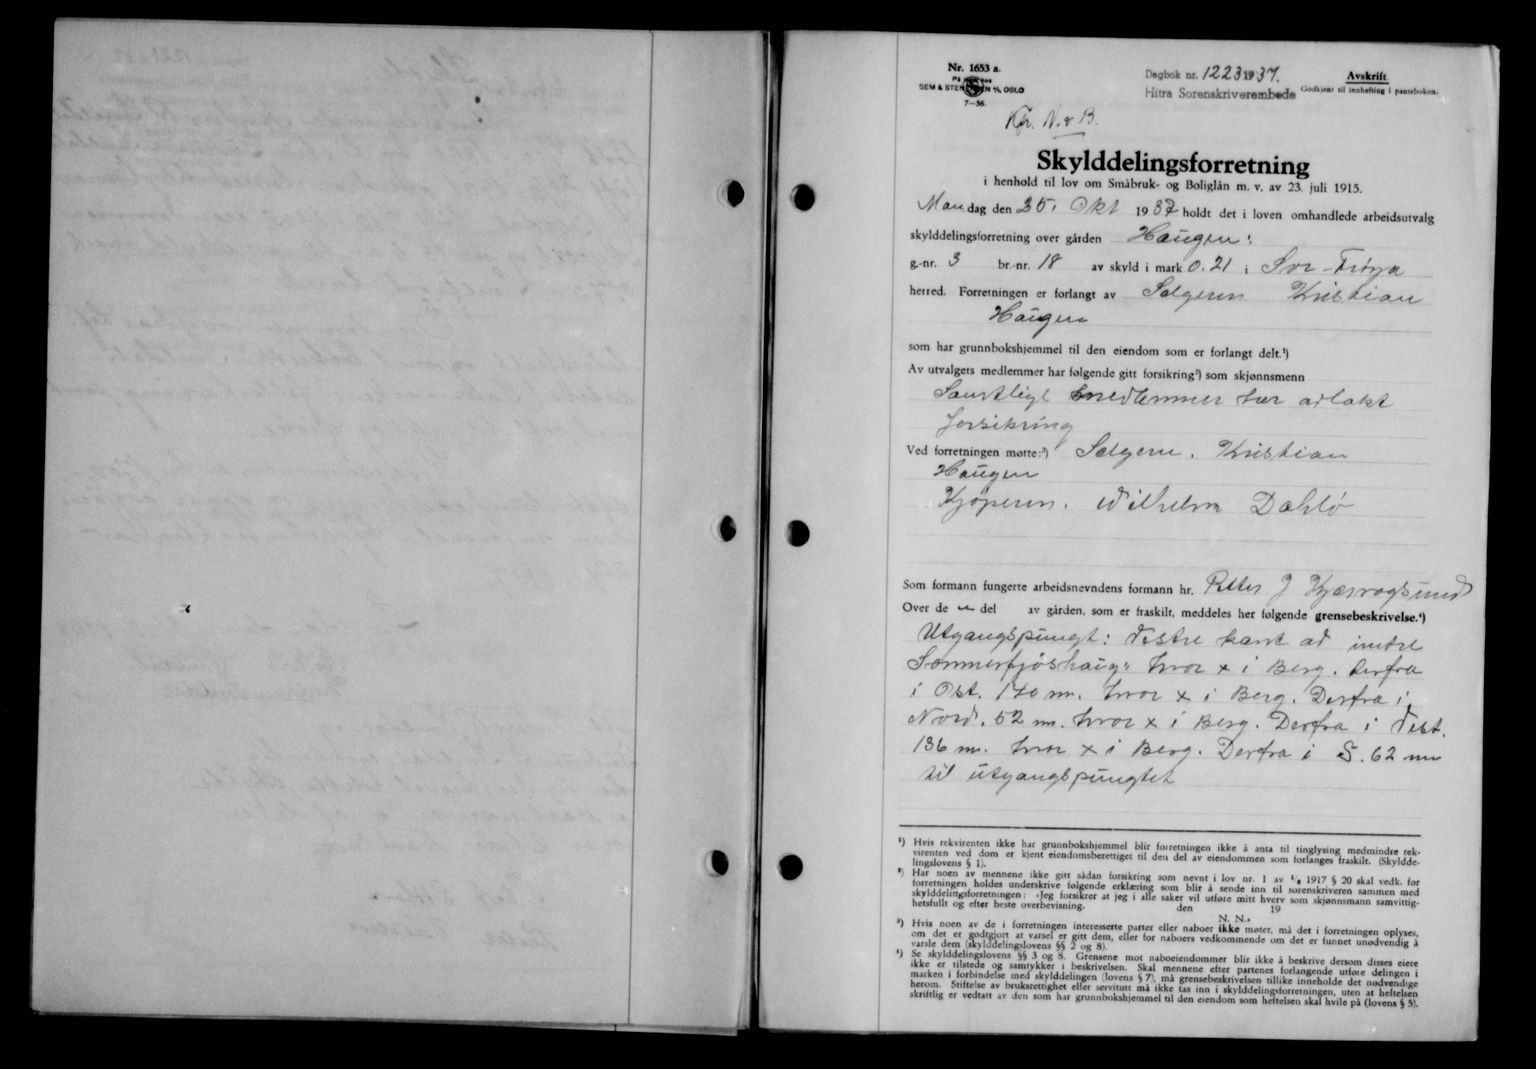 Nr. 1653 a.
SEM & STEN A/S, OSLO
7-36.
Dagbok nr. 1223 1937.
Hitra Sorenskriverembede
Avskrift
Godkjent til innhefting i panteboken.
Kfr. N. & B.
Skylddelingsforretning
i henhold til lov om Småbruk- og Boliglån m. v. av 23. juli 1915.
Mandag den 25. Okt 1937 holdt det i loven omhandlede arbeidsutvalg
skylddelingsforretning over gården Haugen:
g.-nr. 3 br.-nr. 18 av skyld i mark 0.21 i Sør-Frøya
herred. Forretningen er forlangt av Selgeren Kristian
Haugen
som har grunnbokshjemmel til den eiendom som er forlangt delt.¹)
Av utvalgets medlemmer har følgende gitt forsikring²) som skjønnsmenn
Samtlige medlemmer har avlakt
forsikring
Ved forretningen møtte:³) Selgeren. Kristian
Haugen
Kjøperen. Wilhelm Dahlø
Som formann fungerte arbeidsnevndens formann hr. Petter J Kjærvågsund
Over de n del av gården, som er fraskilt, meddeles her følgende grensebeskrivelse.⁴)
Utgangspungt: Vestre kant av indre
Sommerfjøshaug" hvor x i Berg. Derfra
i Ost. 140 m. hvor x i Berg. Derfra i
Nord. 52 m. hvor x i Berg. Derfra i Vest.
136 m. hvor x i Berg. Derfra i S. 62 m
til utgangspungtet
¹) Hvis rekvirenten ikke har grunnbokshjemmel blir forretningen ikke å anta til tinglysing medmindre rek-
virenten ved dom er kjent eiendomsberettiget til den del av eiendommen som forlanges fraskilt. (Skyldde-
lingslovens § 1).
²) Har noen av mennene ikke gitt sådan forsikring som nevnt i lov nr. 1 av 1/6 1917 § 20 skal vedk. før
forretningen holdes underskrive følgende erklæring som blir å sende inn til sorenskriveren sammen med
skylddelingsforretningen: »Jeg forsikrer at jeg i alle saker vil utføre mitt hverv som skjønnsmann samvittig-
hetsfullt og efter beste overbevisning. den 19
N. N.»
³) Hvis noen av de i forretningen interesserte parter eller naboer ikke møter, må det i forretningen oplyses,
om det er godtgjort at varsel er gitt dem, eller for naboers vedkommende om det er funnet unødvendig å
varsle dem (skylddelingslovens §§ 2 og 8).
⁴) Se skylddelingslovens §§ 3 og 8. Grensene mot naboeiendommer blir ikke å beskrive dersom disses eiere
ikke er tilstede og samtykker i beskrivelsen. Skal mennene efter partenes forlangende utføre delingen i
marken i forbindelse med skylddelingen (lovens § 7), må grensebeskrivelsen tillike inneholde det nødvendige
herom. Stiftelse av bruksrettighet eller servitutt må ikke tas inn i skylddelingsforretningen, uten at heftelsen
skriftlig er vedtatt av den som har grunnbokshjemmel til den eiendom som heftelsen skal hvile på (lovens § 5).